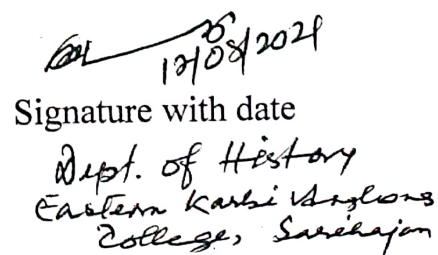 12/08/2021
Signature with date
Dept. of History
Eastern Karbi Anglong
College, Sarihajan